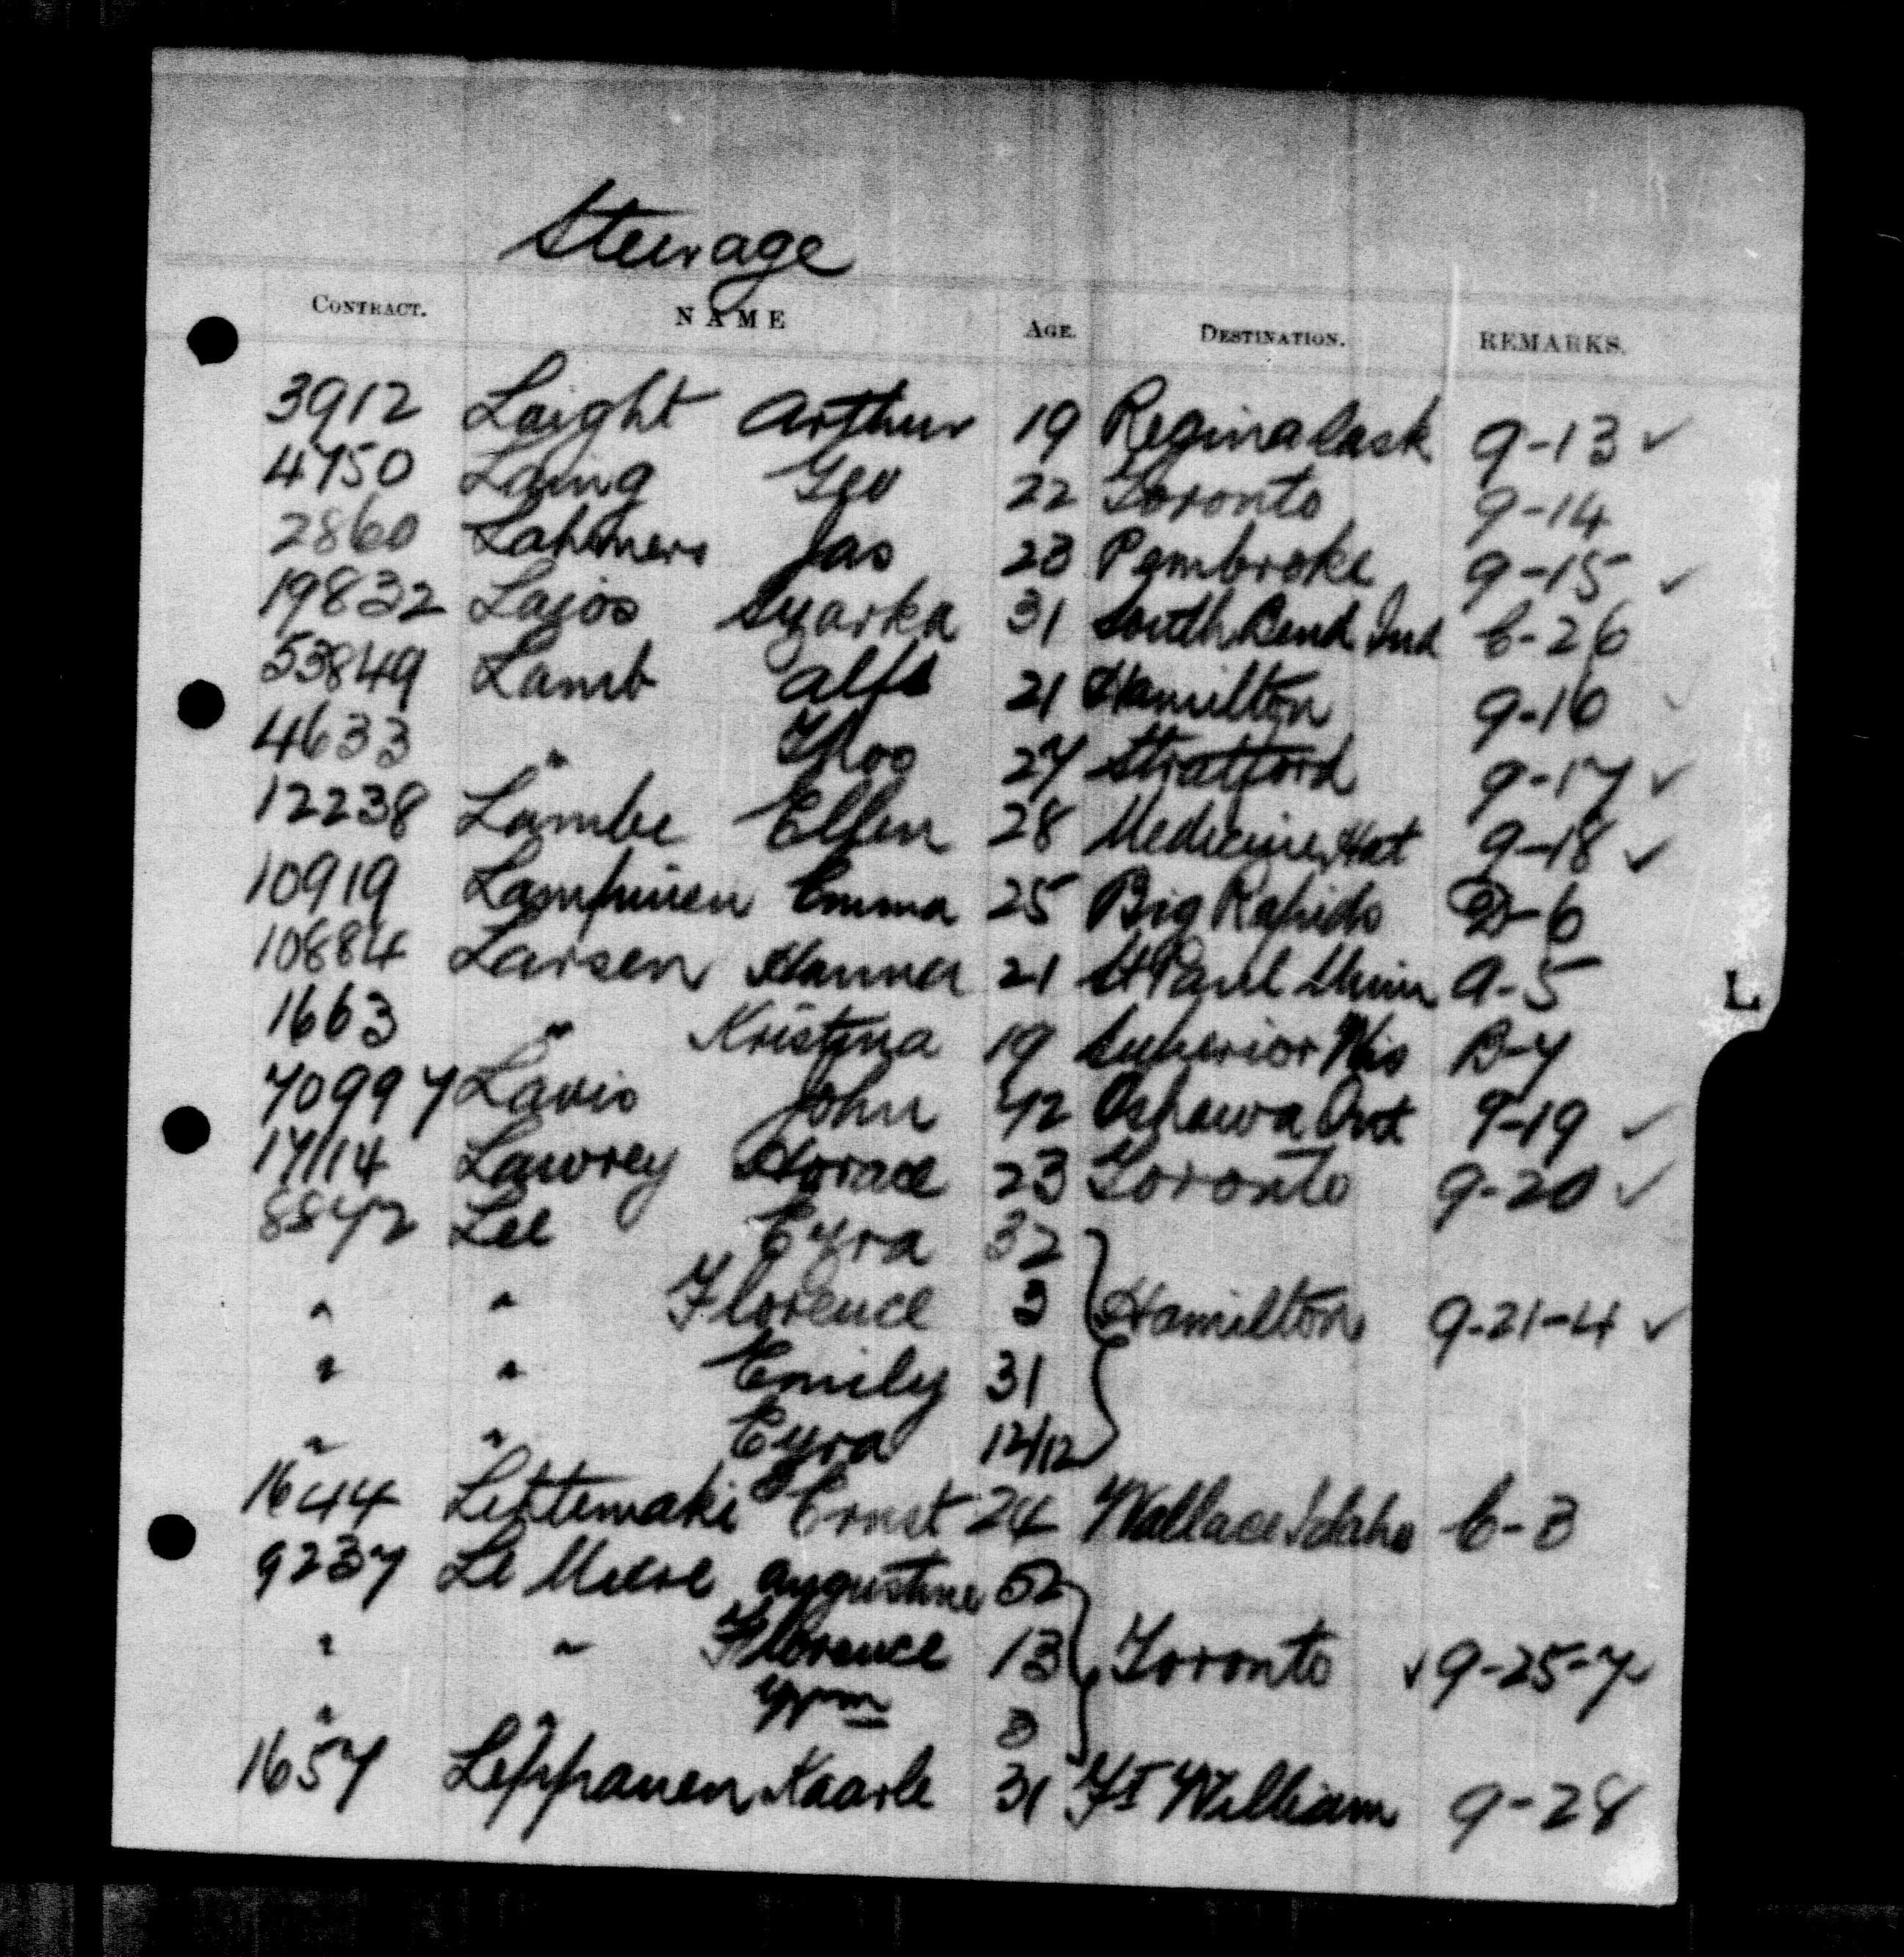 Steerage
CONTRACT. NAME AGE. DESTINATION. REMARKS.
3912 Laight Arthur 19 Regina Sask 9-13 ✓
4750 Laing Geo 22 Toronto 9-14
2860 Lahmers Jas 23 Pembroke 9-15 ✓
19832 Lajos Szarka 31 South Bend Ind C-26
53849 Lamb Alfd 21 Hamilton 9-16 ✓
4633 " Thos 27 Stratford 9-17 ✓
12238 Lambe Ellen 28 Medicine Hat 9-18 ✓
10919 Lampinen Emma 25 Big Rapids D-6
10884 Larsen Hanna 21 St Paul Minn A-5
1663 " Kristina 19 Superior Wis B-7
70997 Lavis John 42 Oshawa Ont 9-19 ✓
17114 Lawrey Horace 23 Toronto 9-20 ✓
8872 Lee Ezra 32
" " Florence 3 Hamilton 9-21-4 ✓
" " Emily 31
" " Ezra 12/12
1644 Lehtemaki Ernst 24 Wallace Idaho C-3
9237 Le Augustine 52
" " Florence 13 Toronto ✓ 9-25-7
" " Wm 3
1657 Leppanen Kaarle 31 Ft William 9-28
L